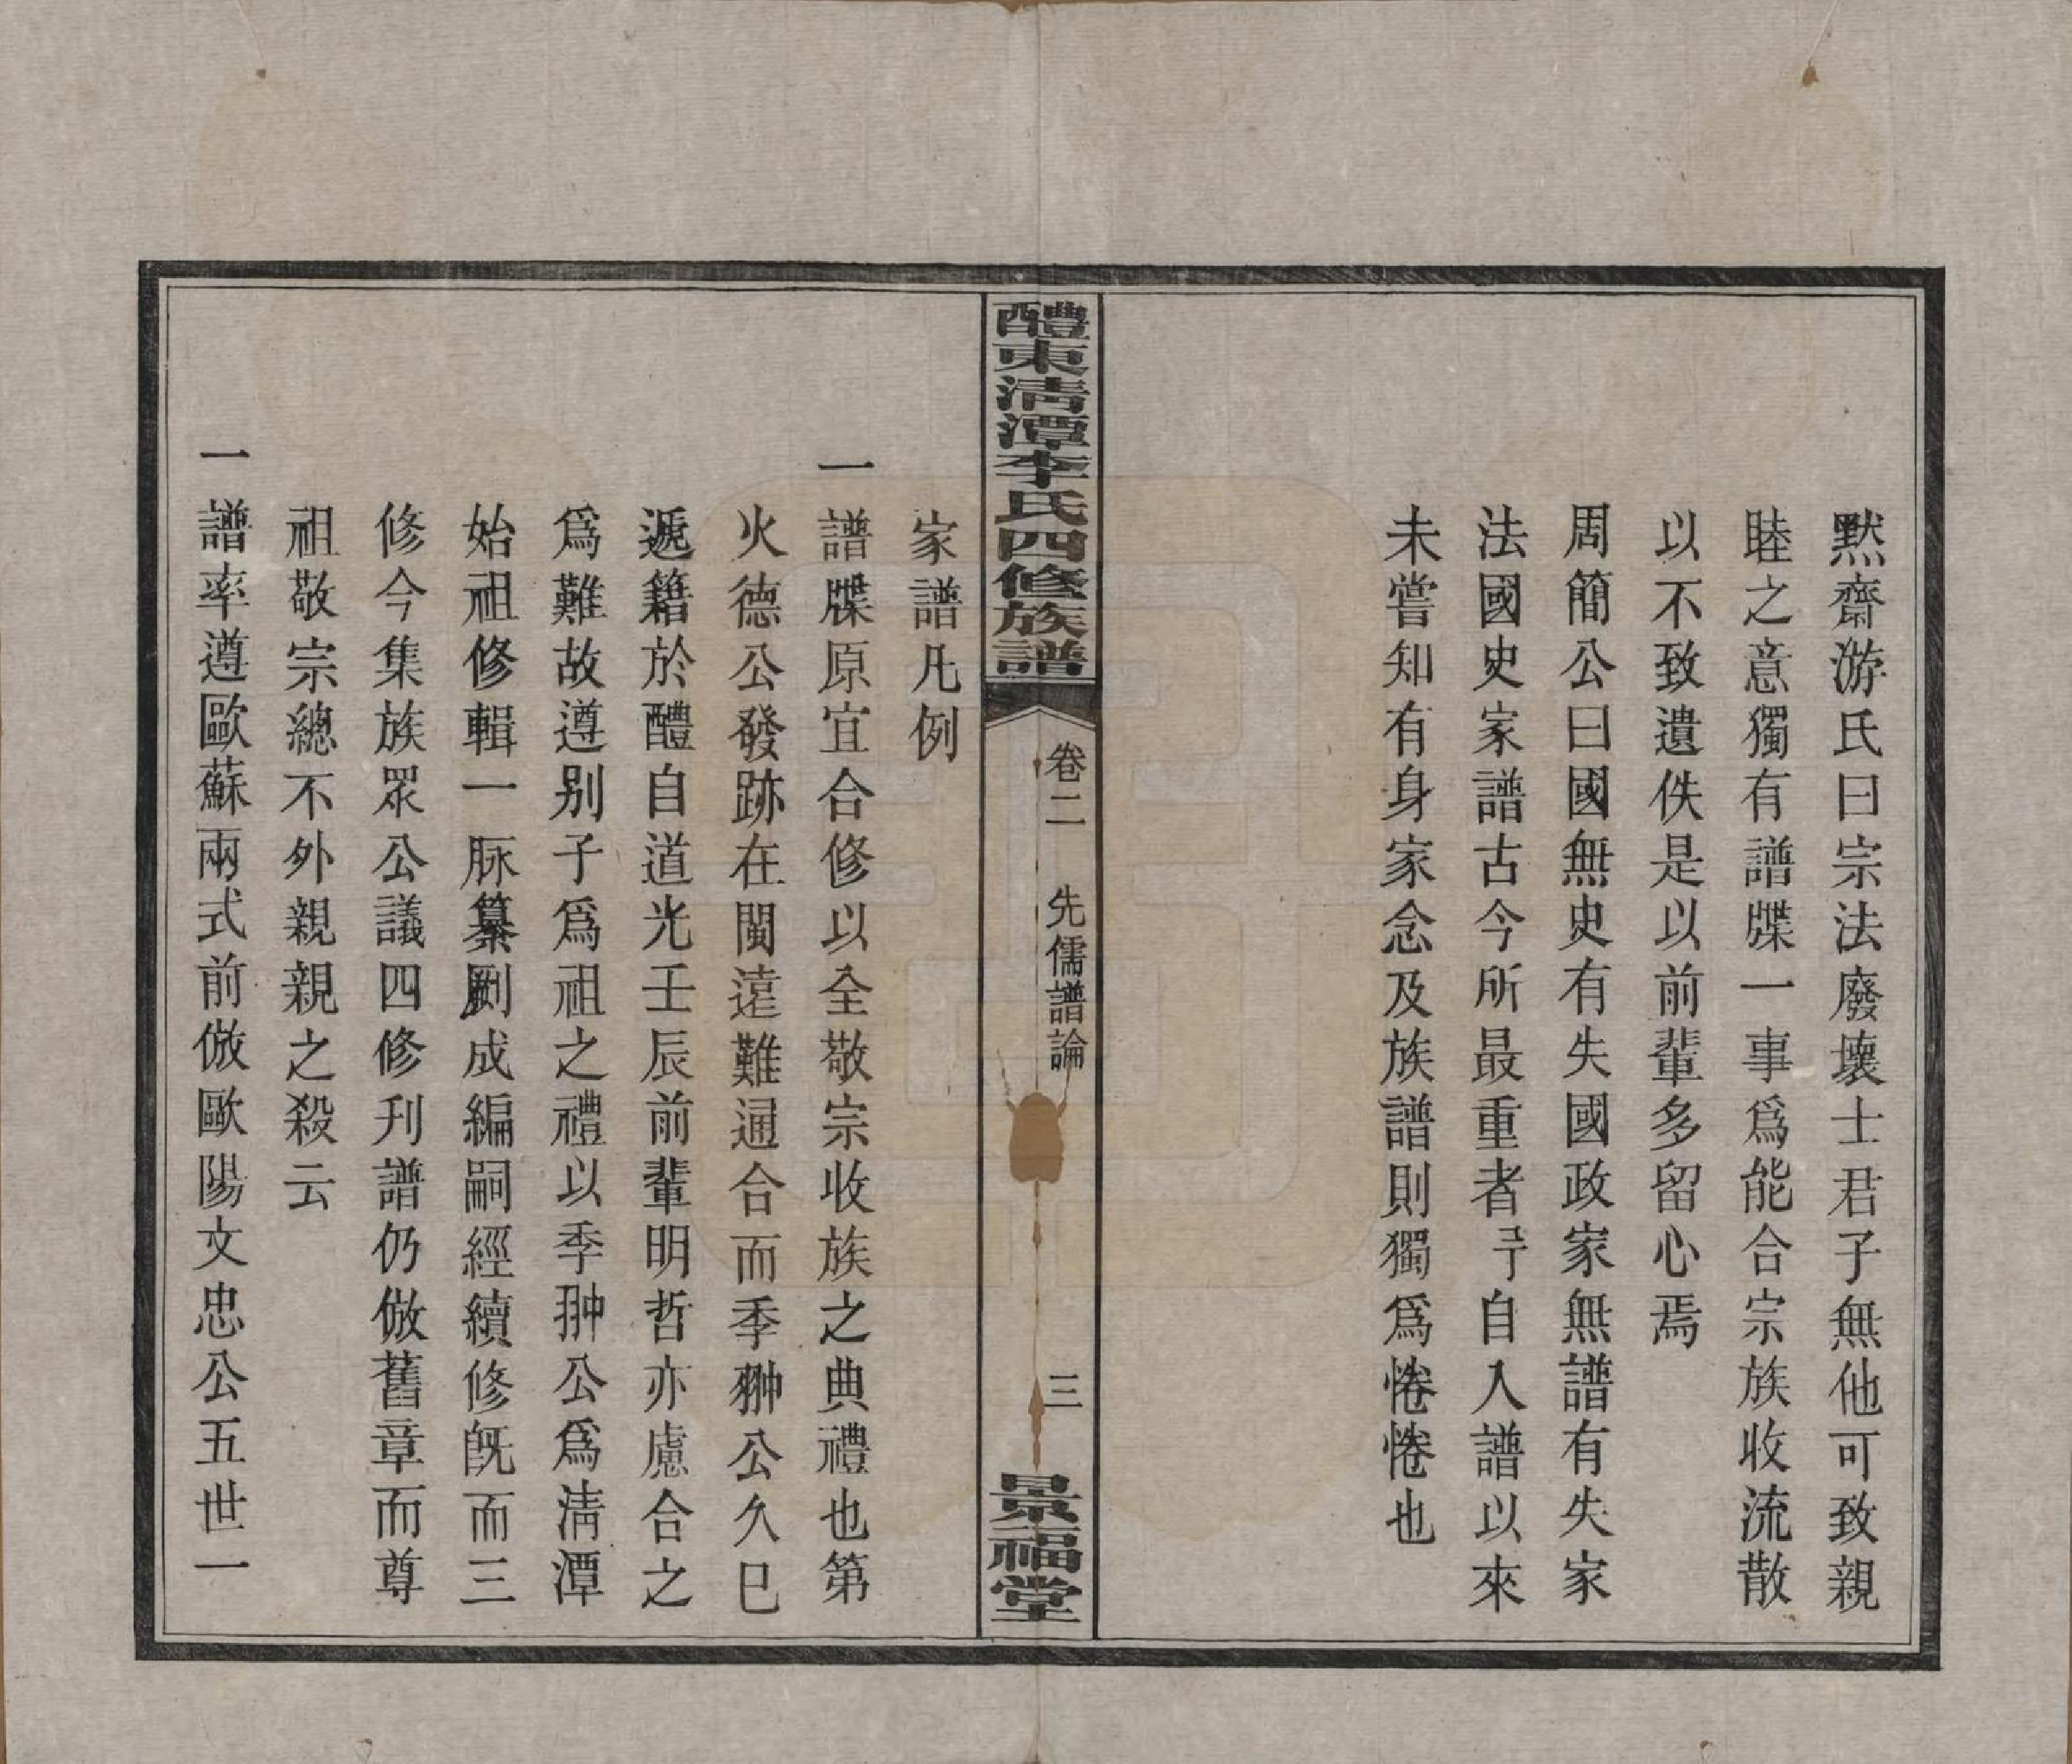 默齋游氏曰宗法廢壞士君子無他可致親
睦之意獨有譜牒一事爲能合宗族收流散
以不致遺佚是以前輩多留心焉
周簡公曰國無史有失國政家無譜有失家
法國史家譜古今所最重者自入譜以來
未嘗知有身家念及族譜則獨爲惓惓也
醴東清潭李氏四修族譜
卷二 先儒譜論
三
景福堂
家譜凡例
一譜牒原宜合修以全敬宗收族之典禮也第
火德公發跡在閩遠難通合而季翀公久巳
遞籍於醴自道光壬辰前輩明哲亦慮合之
爲難故遵别子爲祖之禮以季翀公爲清潭
始祖修輯一脉纂劂成編嗣經續修旣而三
修今集族眾公議四修刋譜仍倣舊章而尊
祖敬宗總不外親親之殺云
一譜率遵歐蘇兩式前倣歐陽文忠公五世一